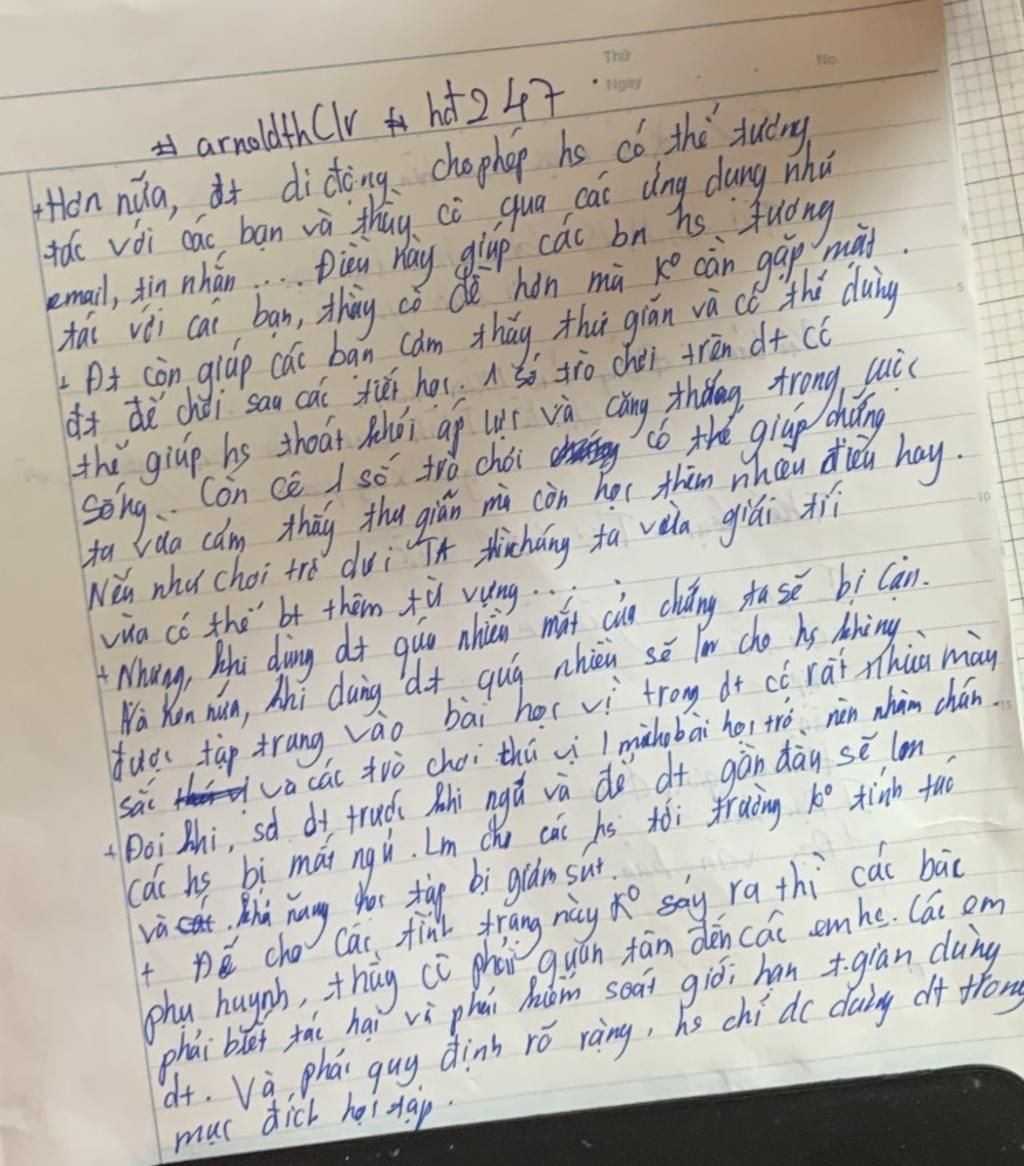 Thứ
No.
Ngày
# arnoldthClr # hdt247
+Hơn nữa, đt di động cho phép hs có thể tương
tác với các bạn và thầy cô qua các ứng dụng như
email, tin nhắn .... Điều này giúp các bn hs tương
tác với các bạn, thầy cô dễ hơn mà K° cần gặp mặt.
+ Đt còn giúp các bạn cảm thấy thư giãn và có thể dùng
đt để chơi sau các tiết học. 1 số trò chơi trên dt có
thể giúp hs thoát khỏi áp lực và căng thẳng trong cuộc
sống.. Còn có 1 số trò chơi có thể giúp chúng
ta vừa cảm thấy thư giãn mà còn học thêm nhiều điều hay.
Nếu như chơi trò dưi TA thì chúng ta vừa giải trí
vừa có thể bt thêm từ vựng...
+ Nhưng, khi dùng dt quá nhiều mắt của chúng ta sẽ bị cận.
Và hơn nữa, khi dùng dt quá nhiều sẽ lm cho hs không
được tập trung vào bài học vì trong dt có rất nhiều màu
sắc và các trò chơi thú vị bài học trở nên nhàm chán.
+ Đôi khi, sd dt trước khi ngủ và để dt gần đây sẽ lm
các hs bị mất ngủ. Lm cho các hs tới trường K° tỉnh táo
và khả năng học tập bị giảm sút.
+ Để cho các tình trạng này K° sảy ra thì các bậc
phụ huynh, thầy cô phải quan tâm đến các em hs. Các em
phải biết tác hại và phải kiểm soát giới hạn t.gian dùng
dt. Và phải quy định rõ ràng, hs chỉ dc dùng dt trong
mục đích học tập.
5
10
15